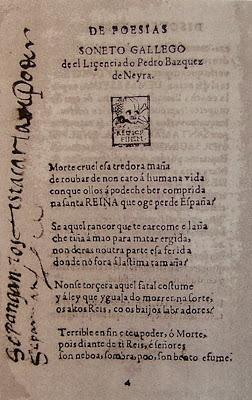 DE POESIAS
SONETO GALLEGO
de el Licenciado Pedro Bazquez
de Neyra.
RESPICE
FINEM
Morte cruel esa tredora maña
de roubar de non cató á humana vida
con que ollos á podeche ber comprida
na santa REINA que oge perde España?
Se aquel rancor que te carcome e laña
che tiña á mao para matar ergida,
non deras noutra parte esa ferida
donde nó fora á lastima tamaña?
Non se torçera aquel fatal costume
y á ley que yguala do morrer na sorte,
os altos Reis, co os baijos labradores?
Terrible en fin e teu poder, ó Morte,
pois diante de ti Reis, é señores
son neboa, sombra, poo, son bento e fume.
4
sepanquantos estacarta